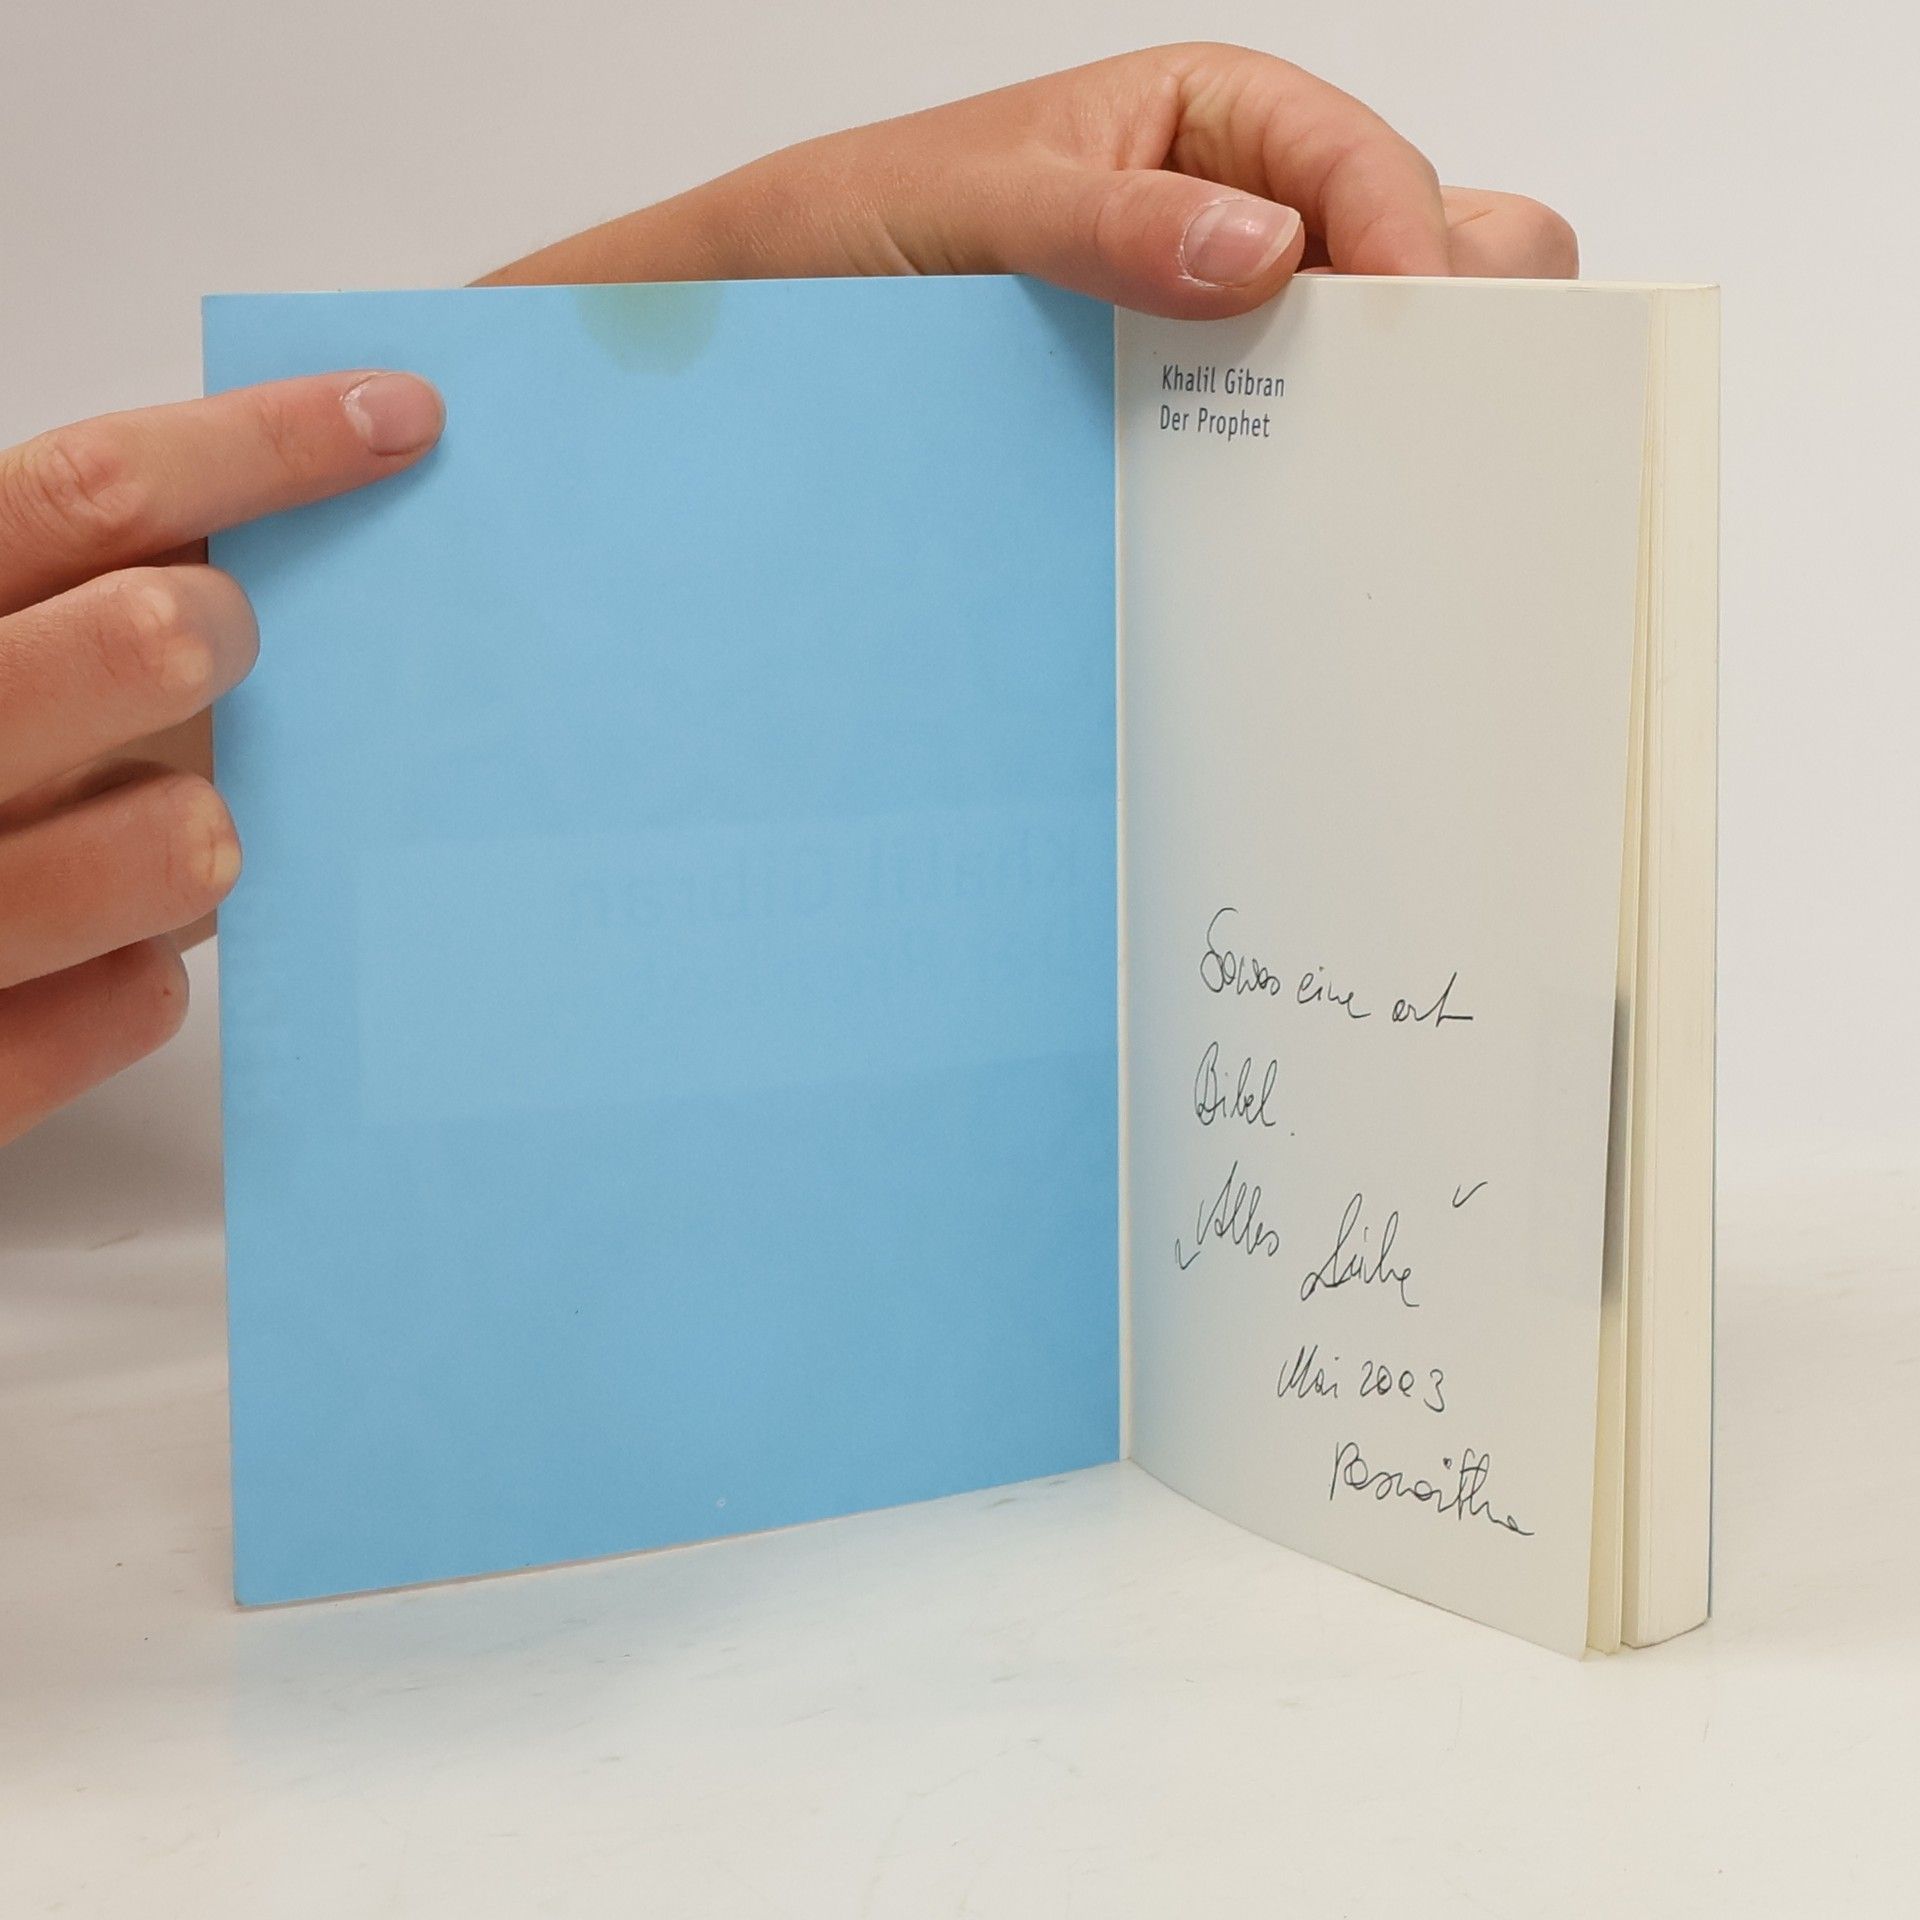 Khalil Gibran
Der Prophet
Sowas eine art
Bibel.
„Alles Liebe“
Mai 2003